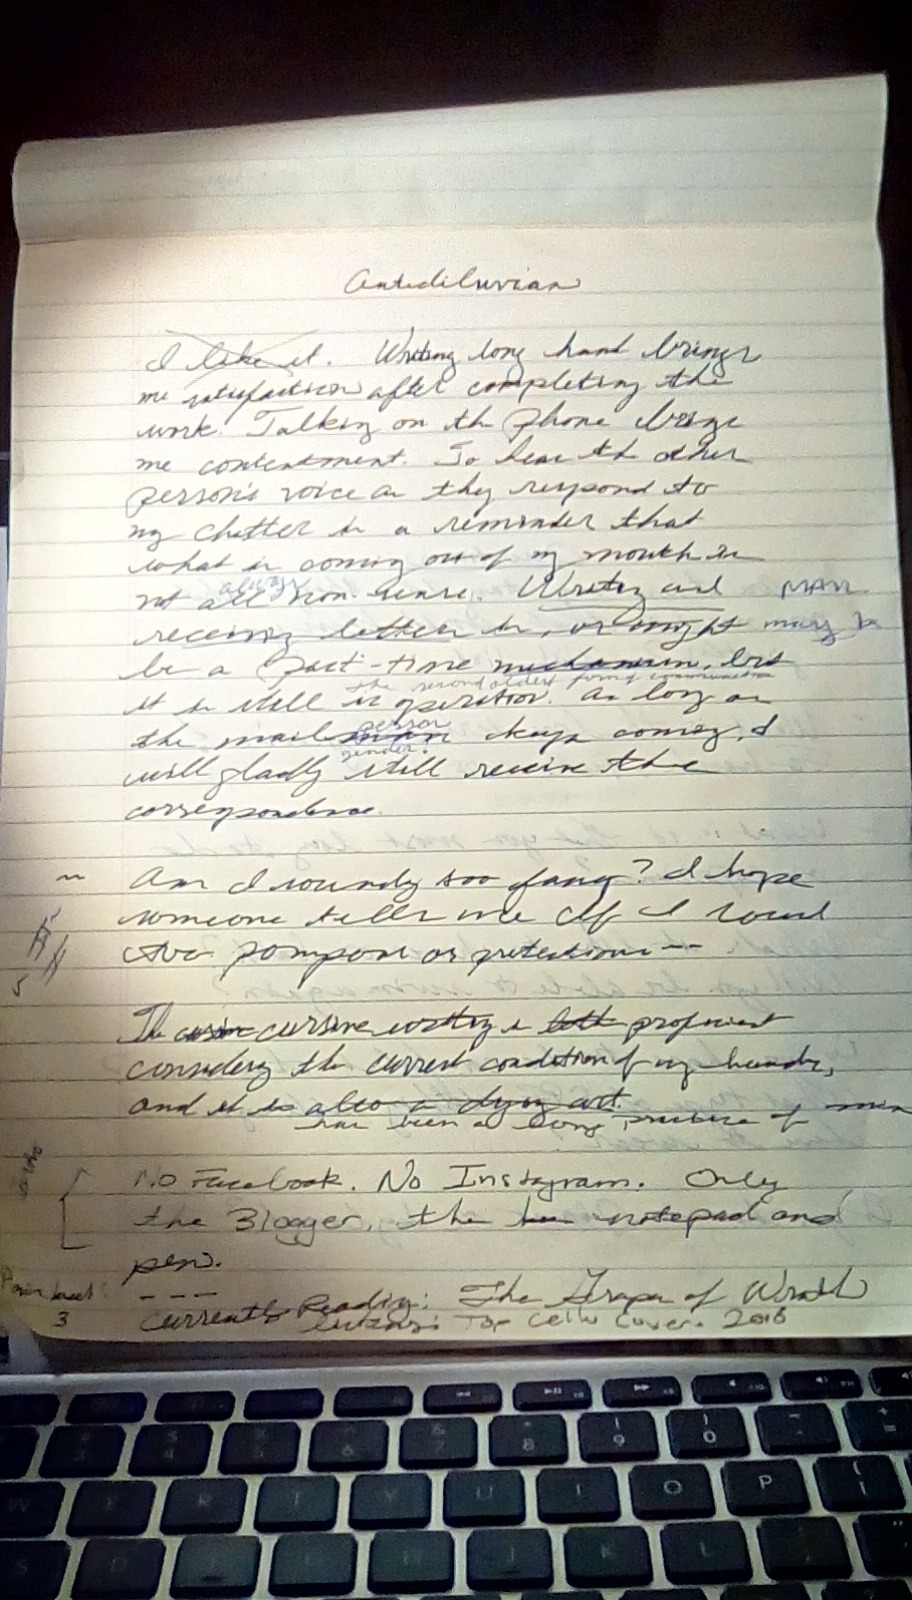 Antidiluvian
I like it. Writing long hand brings
me satisfaction after completing the
work. Talking on th phone brings
me contentment. To hear th other
person's voice as they respond to
my chatter is a reminder that
what is coming out of my mouth is
always
not all non-sense. Writing and MAN
receiving letters is, or might may be
be a past-time mechanism, but
the second oldest form of communication
it is still in operation. As long as
person
the mailman keeps coming, I
gender.
will gladly still receive the
correspondence.
~ Am I sounding too fancy? I hope
someone tells me if I sound
too pompous or pretentious --
The cursive writing is both proficient
considering the current condition of my hands,
and it is also a dying art.
has been a long practice of mine
No Facebook. No Instagram. Only
the Blogger, the notepad and
pen.
---
3
Currently Reading: The Grapes of Wrath
Top Cello Covers 2016
F1
9
0
8
7
6
5
4
W
E
R
T
Y
U
I
O
P
S
D
F
G
H
J
K
L